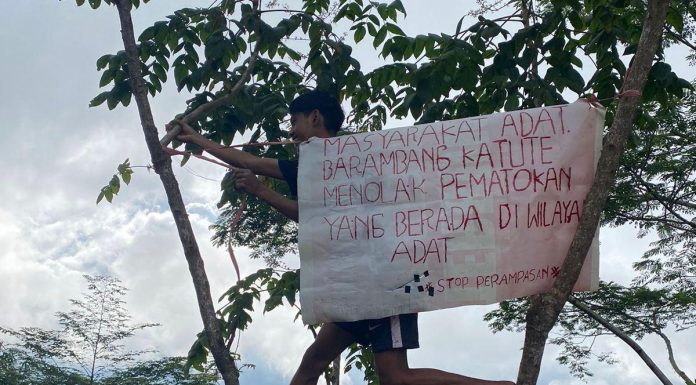 MASYARAKAT ADAT.
BARAMBANG KATUTE
MENOLAK PEMATOKAN
YANG BERADA DI WILAYA
ADAT
*STOP PERAMPASAN*